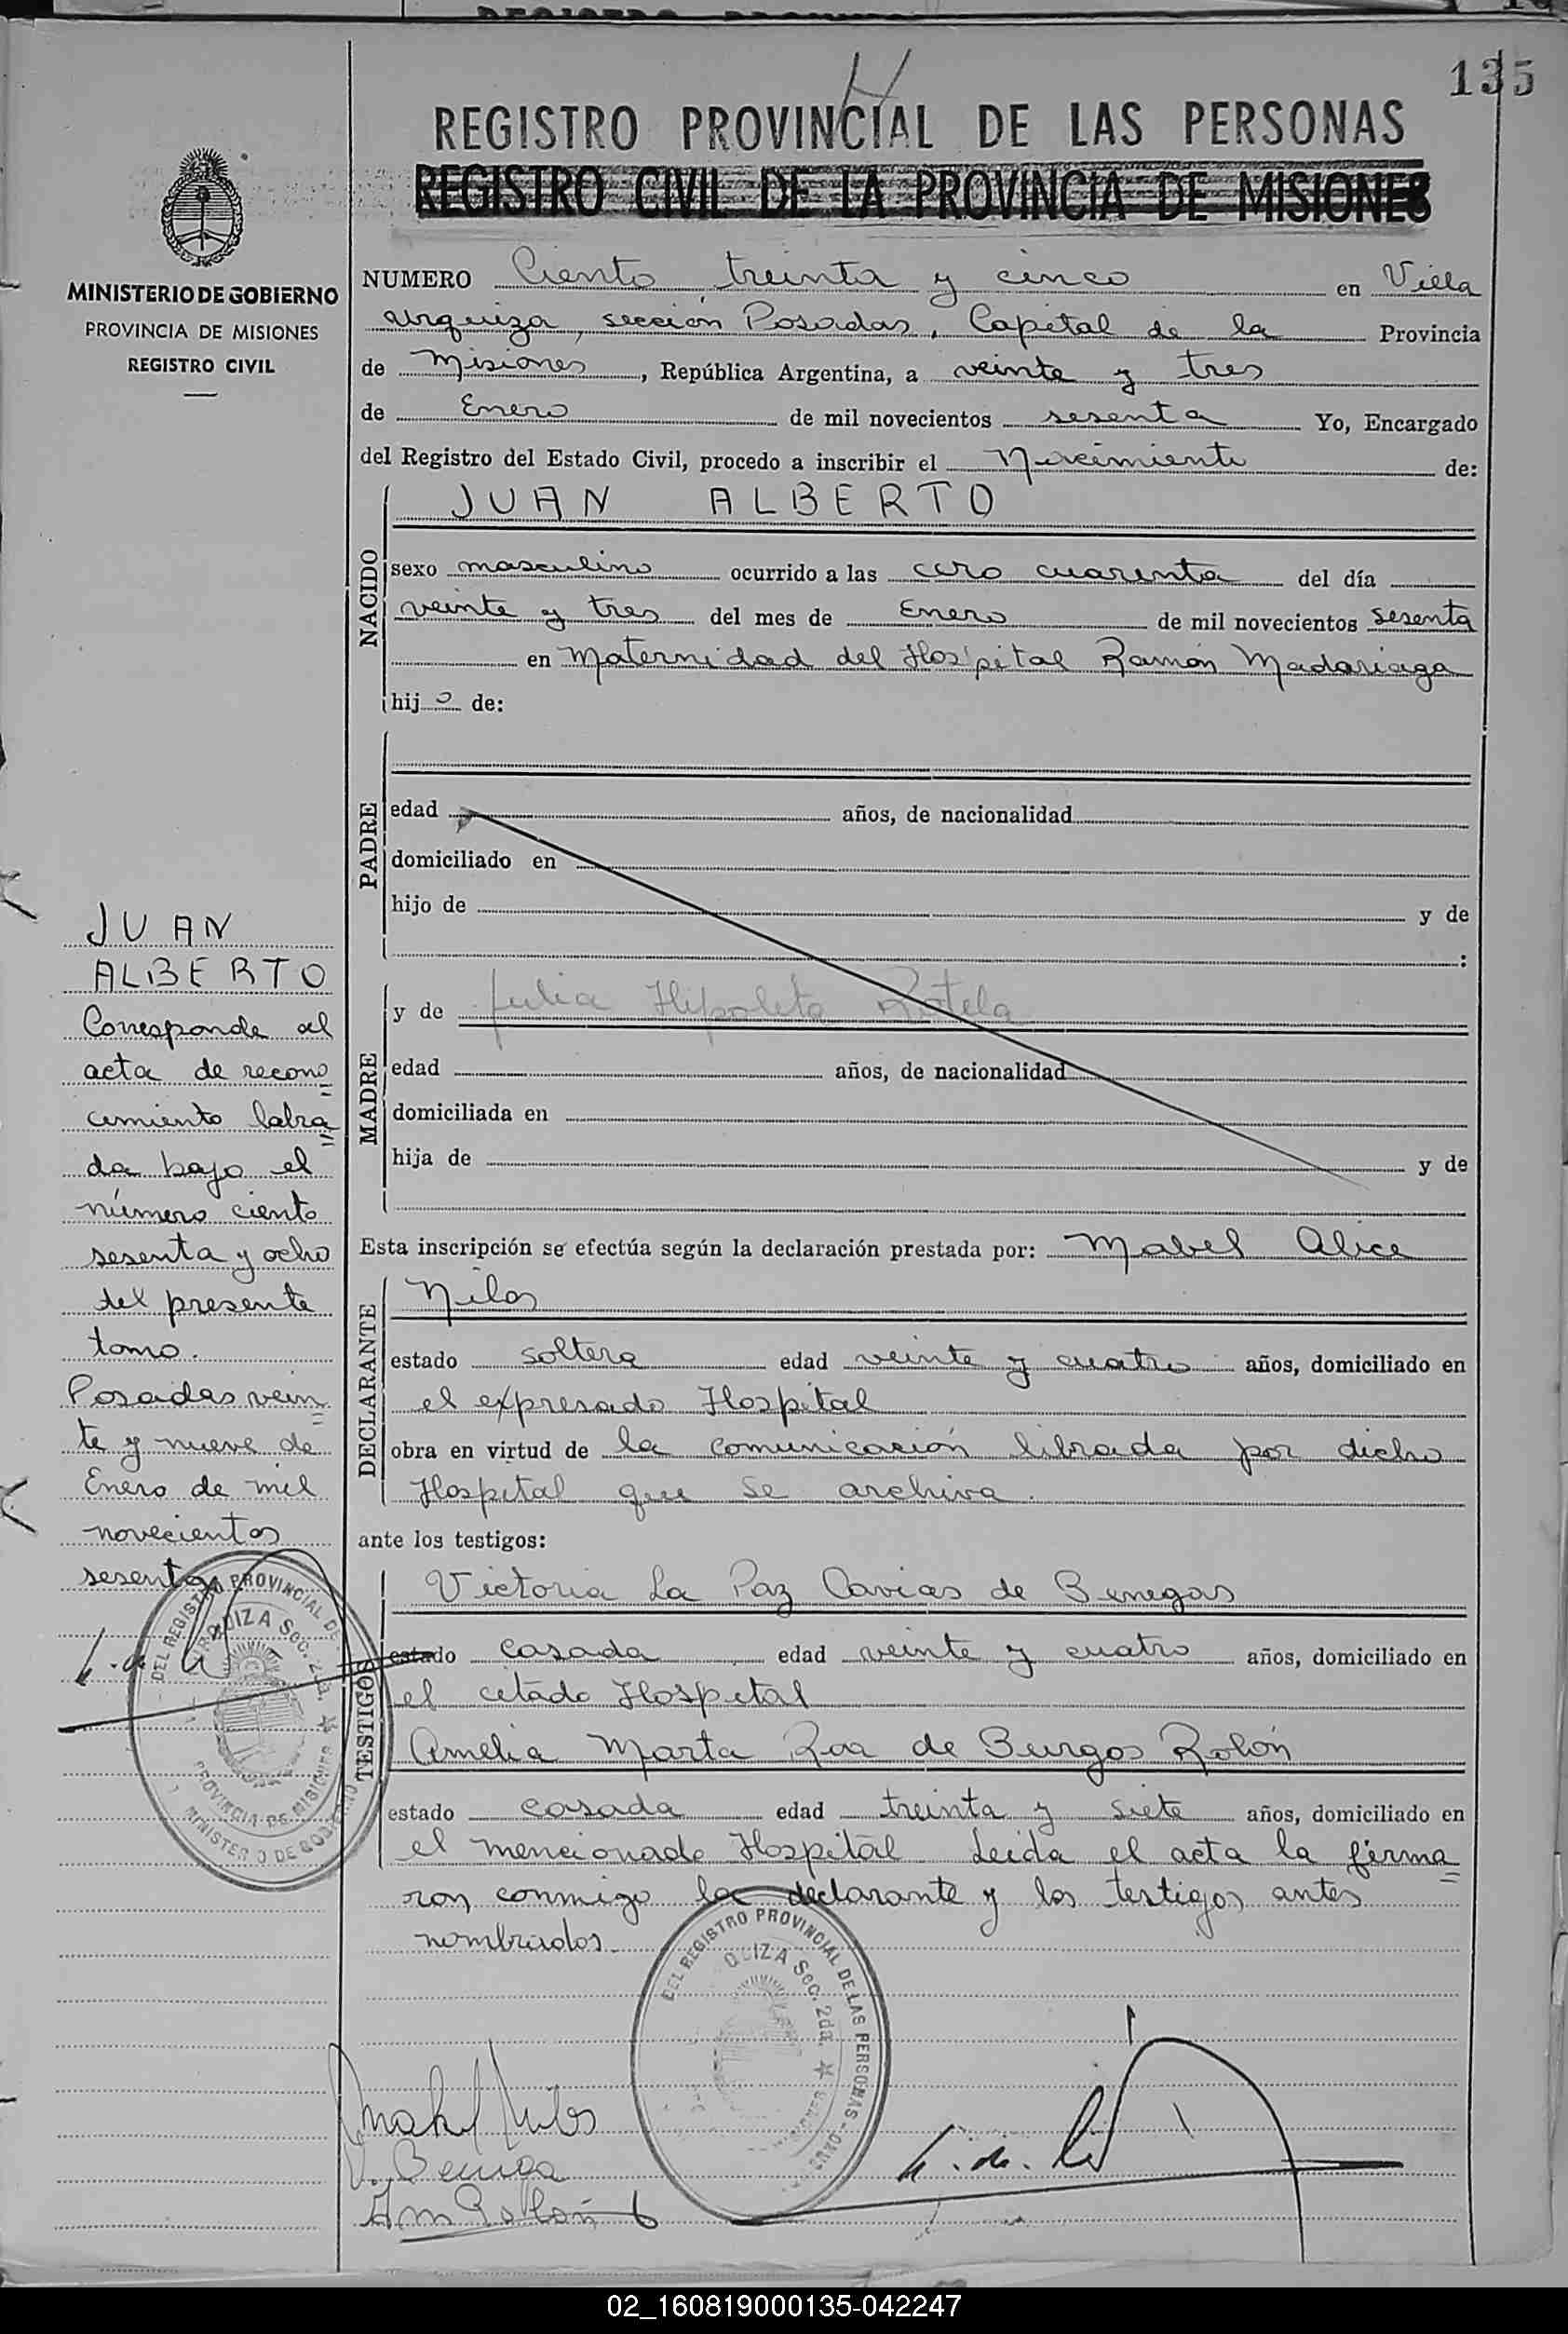 135
REGISTRO PROVINCIAL DE LAS PERSONAS
REGISTRO CIVIL DE LA PROVINCIA DE MISIONES
MINISTERIO DE GOBIERNO
PROVINCIA DE MISIONES
REGISTRO CIVIL
NUMERO Ciento treinta y cinco en Villa
urquiza, sección Posadas, Capital de la Provincia
de Misiones, República Argentina, a veinte y tres
de Enero de mil novecientos sesenta Yo, Encargado
del Registro del Estado Civil, procedo a inscribir el Nacimiento de:
JUAN ALBERTO
NACIDO
sexo masculino ocurrido a las cero cuarenta del día
veinte y tres del mes de Enero de mil novecientos sesenta
en Maternidad del Hospital Ramón Madariaga
hijo de:
PADRE
edad años, de nacionalidad
domiciliado en
hijo de y de
:
MADRE
y de Julia Hipolita Rotela
edad años, de nacionalidad
domiciliada en
hija de y de
Esta inscripción se efectúa según la declaración prestada por: Mabel Alice
Nilos
DECLARANTE
estado soltera edad veinte y cuatro años, domiciliado en
el expresado Hospital
obra en virtud de la comunicación librada por dicho
Hospital que se archiva.
ante los testigos:
TESTIGOS
Victoria La Paz Cavias de Benegas
estado casada edad veinte y cuatro años, domiciliado en
el citado Hospital
Amelia Marta Roa de Burgos Rolón
estado casada edad treinta y siete años, domiciliado en
el mencionado Hospital Leida el acta la firma=
ron conmigo la declarante y los testigos antes
nombrados.
JUAN
ALBERTO
Corresponde al
acta de recono=
cimiento labra=
da bajo el
número ciento
sesenta y ocho
del presente
tomo.
Posadas vein=
te y nueve de
Enero de mil
novecientos
sesenta
DEL REGISTRO PROVINCIAL DE
URQUIZA Sec. 2da.
PROVINCIA DE MISIONES
MINISTERIO DE GOBIERNO
DEL REGISTRO PROVINCIAL DE LAS PERSONAS
QUIZA Sec. 2da.
Mabel Nilos
02_160819000135-042247